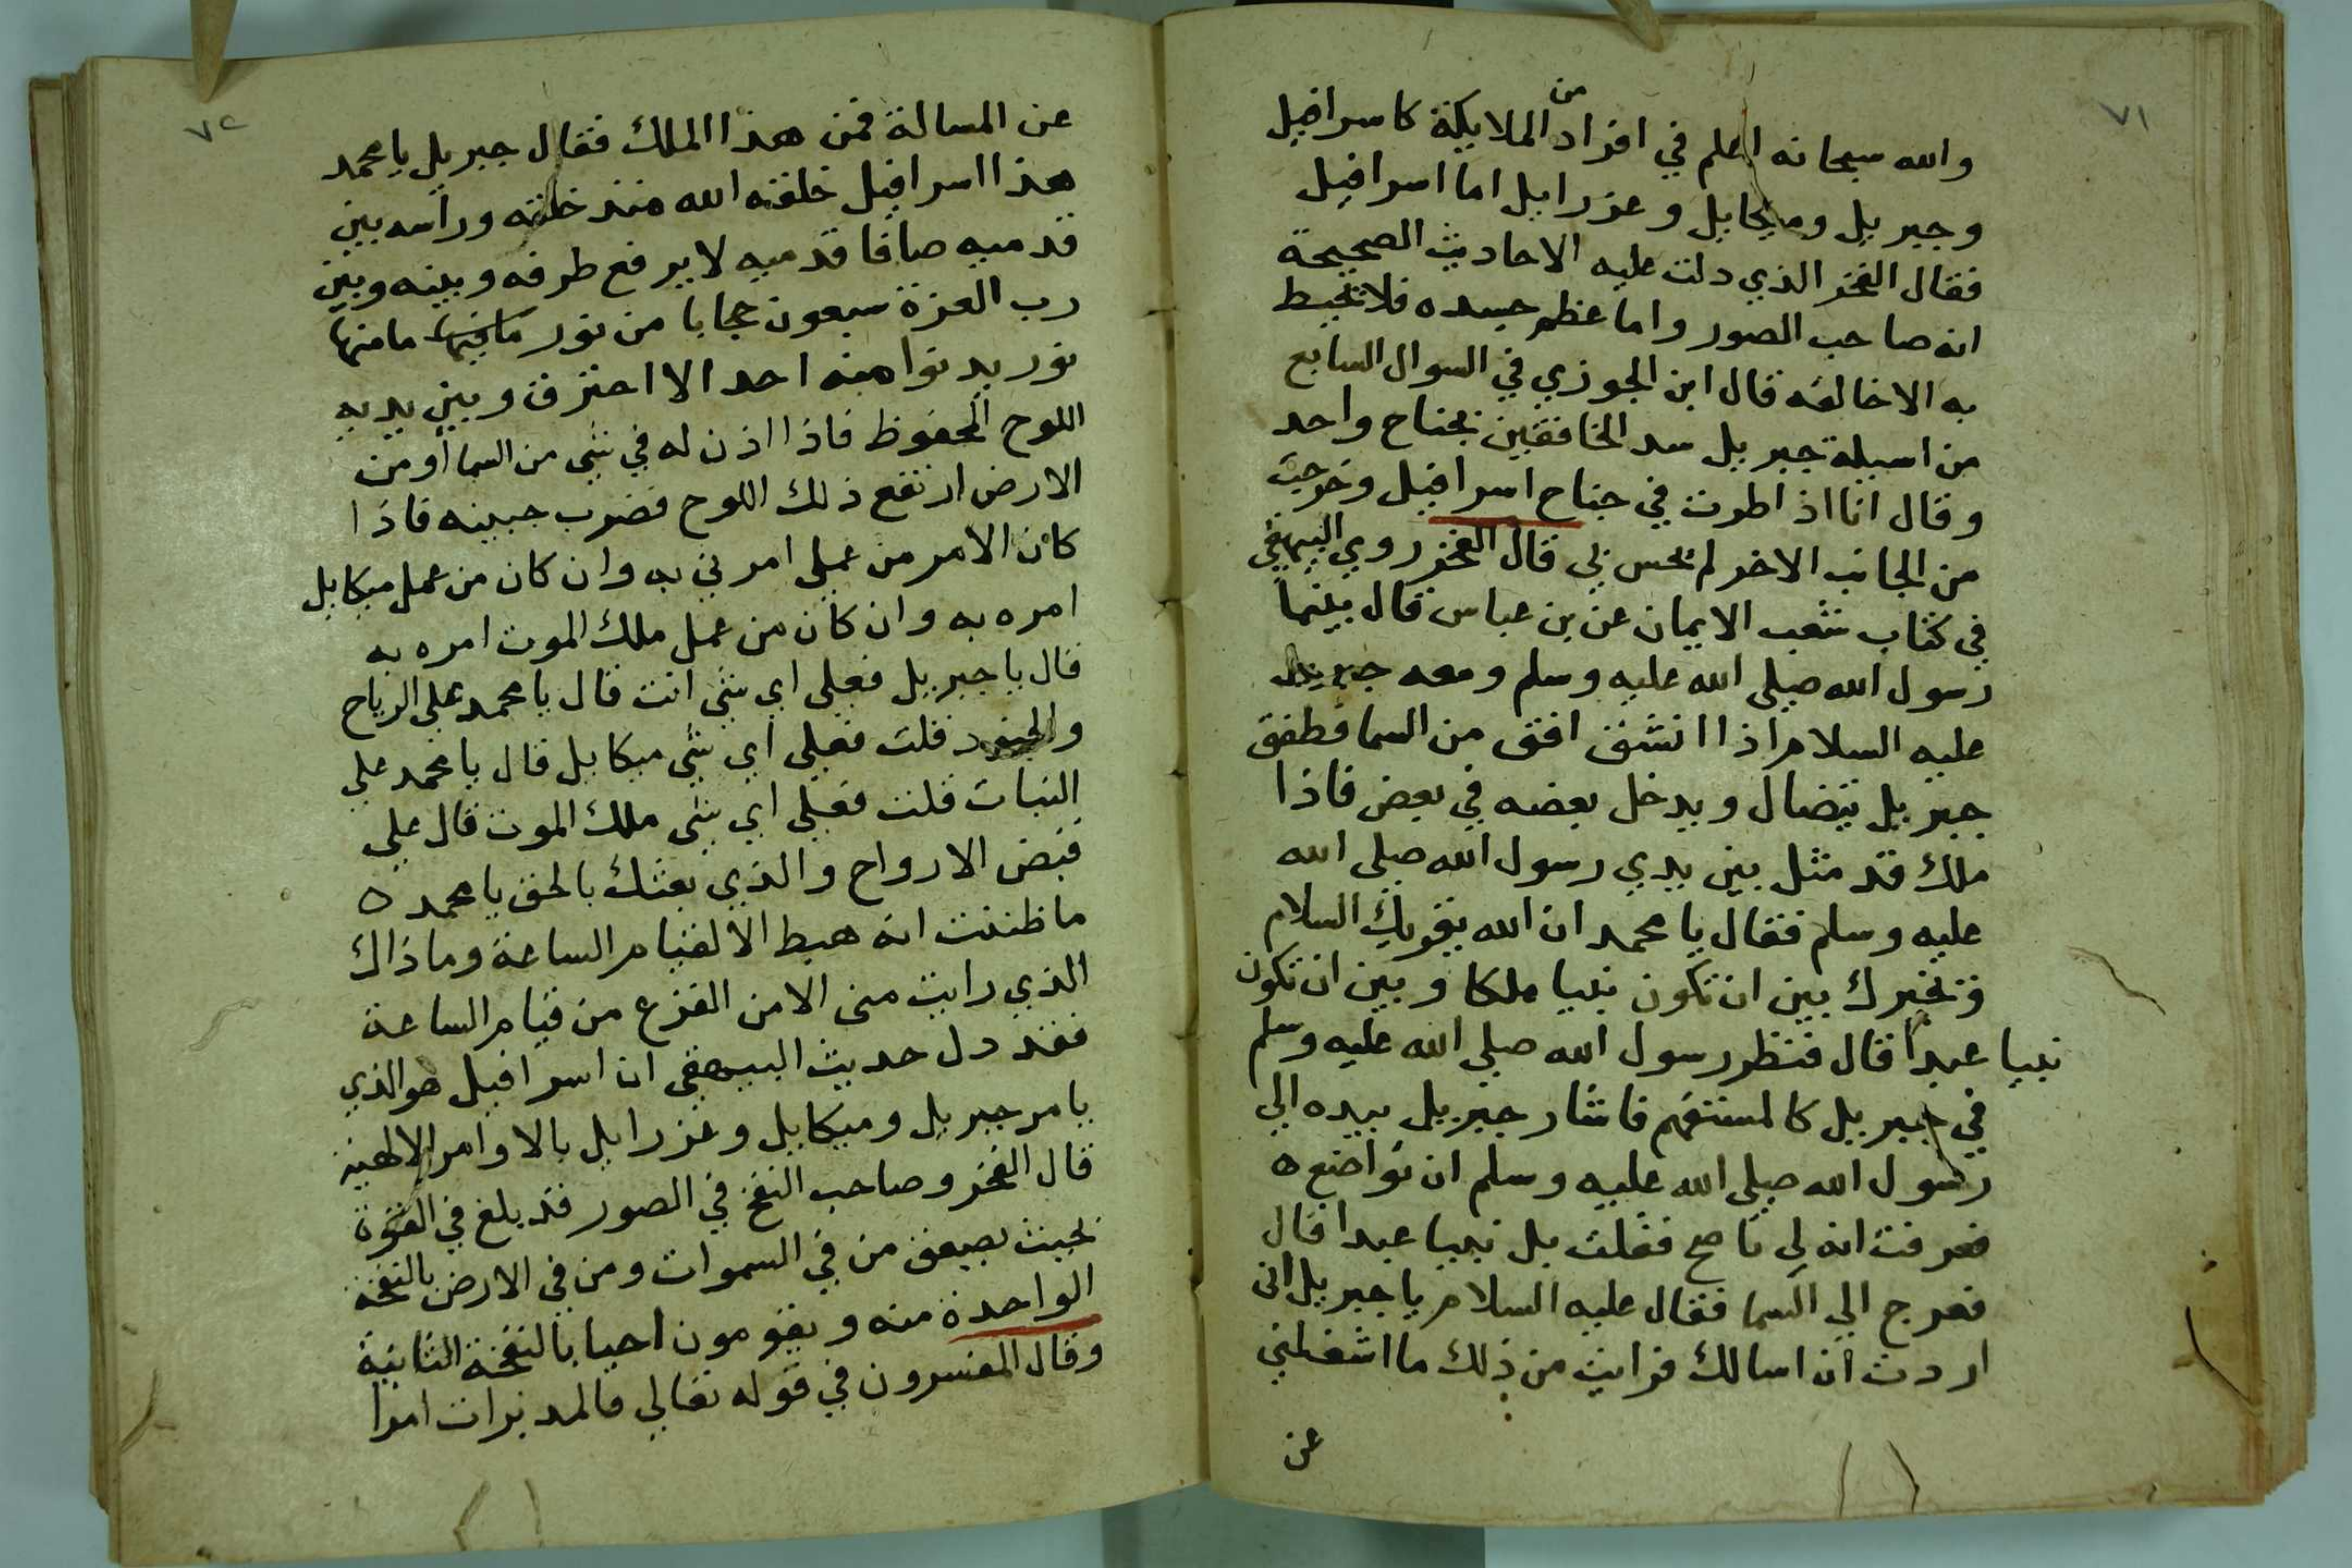 ٧١
من
والله سبحانه اعلم في افراد الملايكة كاسرافيل
وجبريل وميكايل وعزرايل اما اسرافيل
فقال الفخر الذي دلت عليه الاحاديث الصحيحة
انه صاحب الصور واما عظم جسده فلا تحيط
به الاخالقه قال ابن الجوزي في السوال السابع
من اسيلة جبريل سد الخافقين بجناح واحد
وقال انا اذ اطرت في جناح اسرافيل وخرجت
من الجانب الاخر لم يحس بي قال الفخر روي البيهقي
في كتاب شعب الايمان عن بن عباس قال بينما
رسول الله صلى الله عليه وسلم ومعه جبريل
عليه السلام اذا انشق افق من السما فطفق
جبريل يتضال ويدخل بعضه في بعض فاذا
ملك قد مثل بين يدي رسول الله صلى الله
عليه وسلم فقال يا محمد ان الله يقريك السلام
ونخيرك بين ان تكون نبيا ملكا وبين ان تكون
نبيا عبدا قال فنظر رسول الله صلى الله عليه وسلم
في جبريل كالمستفهم فاشار جبريل بيده الي
رسول الله صلى الله عليه وسلم ان تواضع ه
فعرفت انه لي ناصح فقلت بل نبيا عبدا قال
فعرج الي السما فقال عليه السلام يا جبريل اني
اردت ان اسالك فرايت من ذلك ما اشغلني
عن
٧٢
عن المسالة فمن هذا الملك فقال جبريل يا محمد
هذا اسرافيل خلقه الله منذ خلقه وراسه بين
قدميه صافا قدميه لا يرفع طرفه وبينه وبين
رب العزة سبعون حجابا من نور ما منها
نور يدنوا منه احد الا احترق وبين يديه
اللوح المحفوظ فاذا اذن له في شي من السما اومن
الارض ارتفع ذلك اللوح فضرب جبينه فاذا
كان الامر من عملي امرني به وان كان من عمل ميكايل
امره به وان كان من عمل ملك الموت امره به
قال يا جبريل فعلي اي شي انت قال يا محمد علي الرياح
والجنود قلت فعلي اي شي ميكايل قال يا محمد علي
النبات قلت فعلي اي شي ملك الموت قال علي
قبض الارواح والذي بعثك بالحق يا محمد ه
ما ظننت انه هبط الا لقيام الساعة وما ذاك
الذي رايت مني الا من الفزع من قيام الساعة
فقد دل حديث البيهقي ان اسرافيل هو الذي
يامر جبريل وميكايل وعزرايل بالاوامر الالهية
قال الفخر وصاحب النفخ في الصور قد بلغ في القوة
بحيث يصعق من في السموات ومن في الارض بالنفخة
الواحدة منه ويقومون احيا بالنفخة الثانية
وقال المفسرون في قوله تعالي فالمدبرات امرا